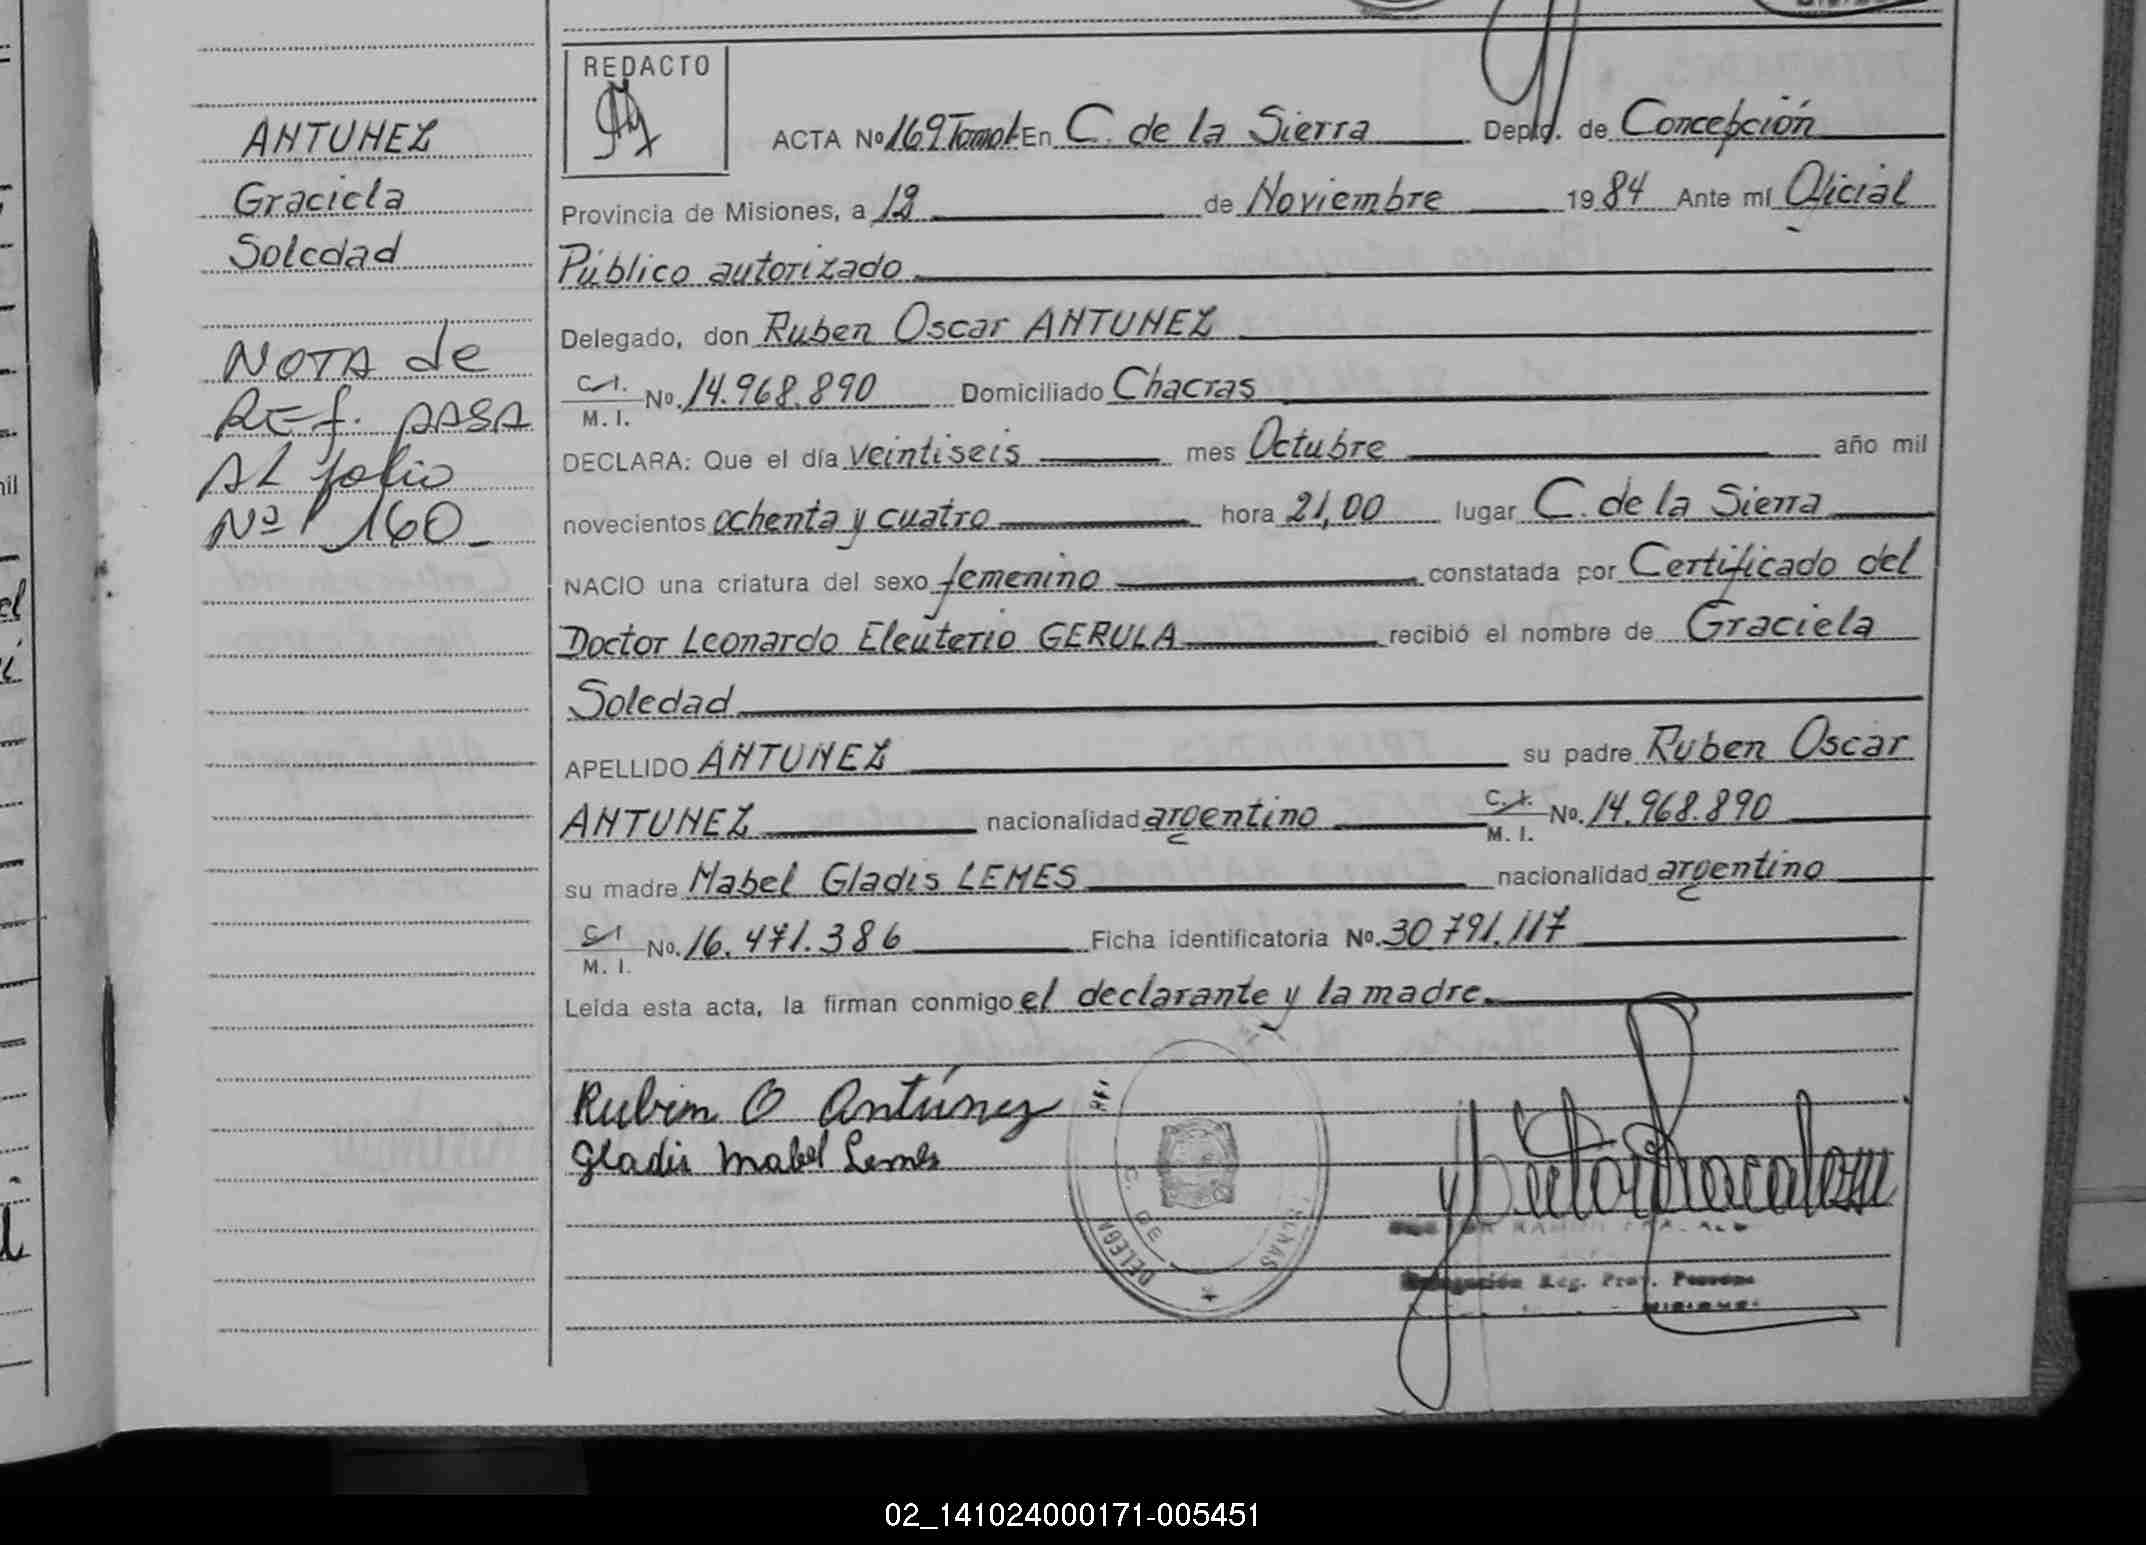 REDACTO
ACTA Nº 169 Tomo I En C. de la Sierra Depto. de Concepción
Provincia de Misiones, a 12 de Noviembre 1984 Ante mí Oficial
Público autorizado
Delegado, don Ruben Oscar ANTUNEZ
C.I.
M. I. No. 14.968.890 Domiciliado Chacras
DECLARA: Que el día veintiseis mes Octubre año mil
novecientos ochenta y cuatro hora 21,00 lugar C. de la Sierra
NACIO una criatura del sexo femenino constatada por Certificado del
Doctor Leonardo Eleuterio GERULA recibió el nombre de Graciela
Soledad
APELLIDO ANTUNEZ su padre Ruben Oscar
ANTUNEZ nacionalidad argentino C.I. M. I. No. 14.968.890
su madre Mabel Gladis LEMES nacionalidad argentino
C.I.
M. I. No. 16.471.386 Ficha identificatoria No. 30.791.117
Leída esta acta, la firman conmigo el declarante y la madre.
Ruben O Antúnez
Gladis Mabel Lemes
DELEGA
C. DE
Delegación Reg. Prov. Personas
MISIONES
ANTUNEZ
Graciela
Soledad
NOTA de
REF. PASA
AL folio
Nº 160
02_141024000171-005451